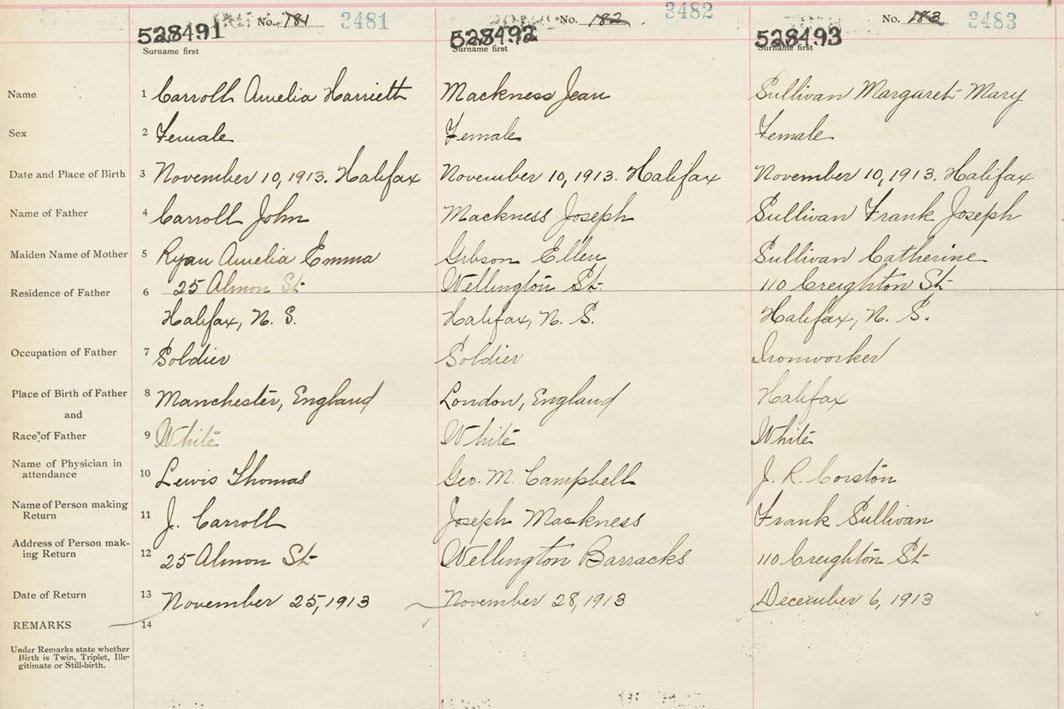 No. 181 3481 No. 182 3482 No. 183 3483
528491 528492 528493
Surname first Surname first Surname first
Name 1 Carroll Amelia Harrieth Mackness Jean Sullivan Margaret Mary
Sex 2 Female Female Female
Date and Place of Birth 3 November 10, 1913. Halifax November 10, 1913. Halifax November 10, 1913. Halifax
Name of Father 4 Carroll John Mackness Joseph Sullivan Frank Joseph
Maiden Name of Mother 5 Ryan Amelia Emma Gibson Ellen Sullivan Catherine
Residence of Father 6 25 Almon St Wellington St 110 Creighton St
Halifax, N. S. Halifax, N. S. Halifax, N. S.
Occupation of Father 7 Soldier Soldier Ironworker
Place of Birth of Father 8 Manchester, England London, England Halifax
and
Race of Father 9 White White White
Name of Physician in
attendance 10 Lewis Thomas Geo. M. Campbell J. R. Corston
Name of Person making
Return 11 J. Carroll Joseph Mackness Frank Sullivan
Address of Person mak-
ing Return 12 25 Almon St Wellington Barracks 110 Creighton St
Date of Return 13 November 25, 1913 November 28, 1913 December 6, 1913
REMARKS 14
Under Remarks state whether
Birth is Twin, Triplet, Ille-
gitimate or Still-birth.